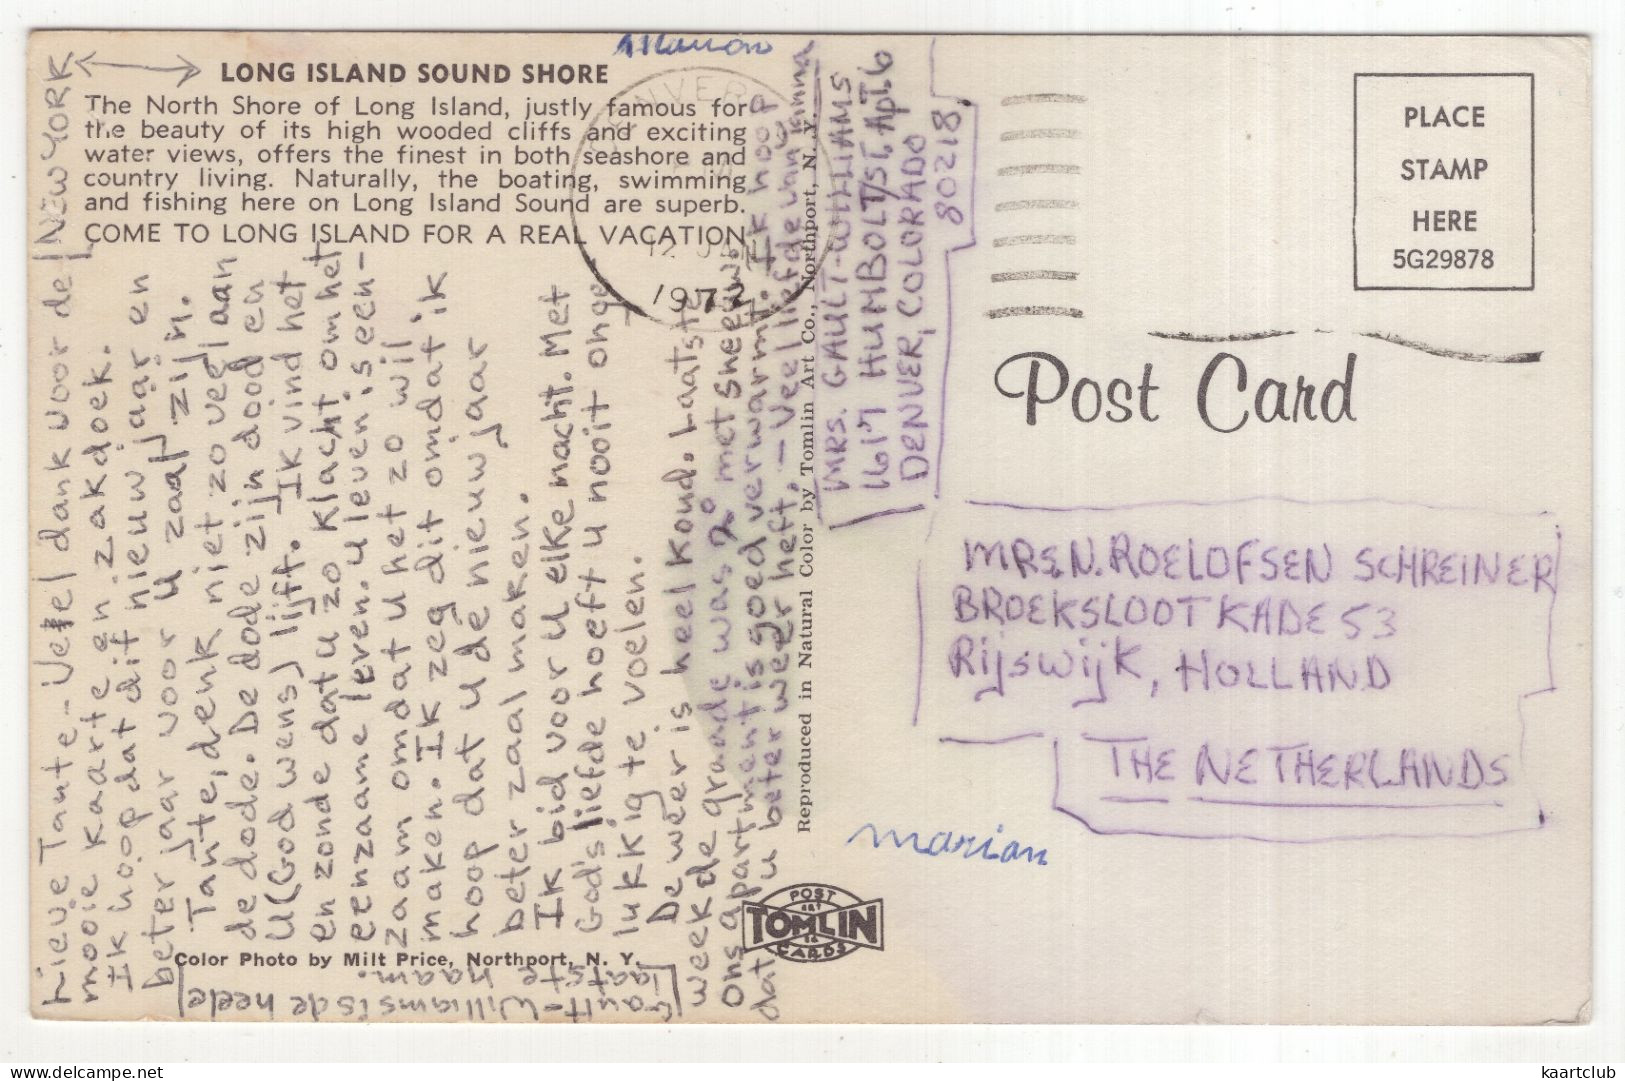 LONG ISLAND SOUND SHORE
The North Shore of Long Island, justly famous for
the beauty of its high wooded cliffs and exciting
water views, offers the finest in both seashore and
country living. Naturally, the boating, swimming
and fishing here on Long Island Sound are superb.
COME TO LONG ISLAND FOR A REAL VACATION
NEW YORK
Lieve Tante - Veel dank voor de
mooie kaarte en zakdoek.
Ik hoop dat dit nieuw jaar en
beter jaar voor u zaal zijn.
Tante, denk niet zo veel aan
de dode. De dode zijn dood en
u (God wens) lijft. Ik vind het
en zonde dat u zo klacht om het
eenzaame leven. u leven is een-
zaam omdat u het zo wil
maken. Ik zeg dit omdat ik
hoop dat u de nieuw jaar
beter zaal maken.
Ik bid voor u elke nacht. Met
God's liefde hoeft u nooit onge-
lukkig te voelen.
De weer is heel koud. Laatste
week de graade was 20° met sneeuw.
Ons apartment is goed verwarmt. Ik hoop
dat u beter weer heft. - Veel liefde van
Marion
Gault-Williams is de heele
laatste naam.
Color Photo by Milt Price, Northport, N. Y.
Reproduced in Natural Color by Tomlin Art Co., Northport, N. Y.
DENVER
12 JAN
1972
MRS. GAULT-WILLIAMS
1617 HUMBOLT ST. APT. 6
DENVER, COLORADO
80218
PLACE
STAMP
HERE
5G29878
Post Card
MRS. N. ROELOFSEN SCHREINER
BROEKSLOOTKADE 53
Rijswijk, HOLLAND
THE NETHERLANDS
marian
POST
ART
TOMLIN
CARDS
delcampe.net
kaartclub